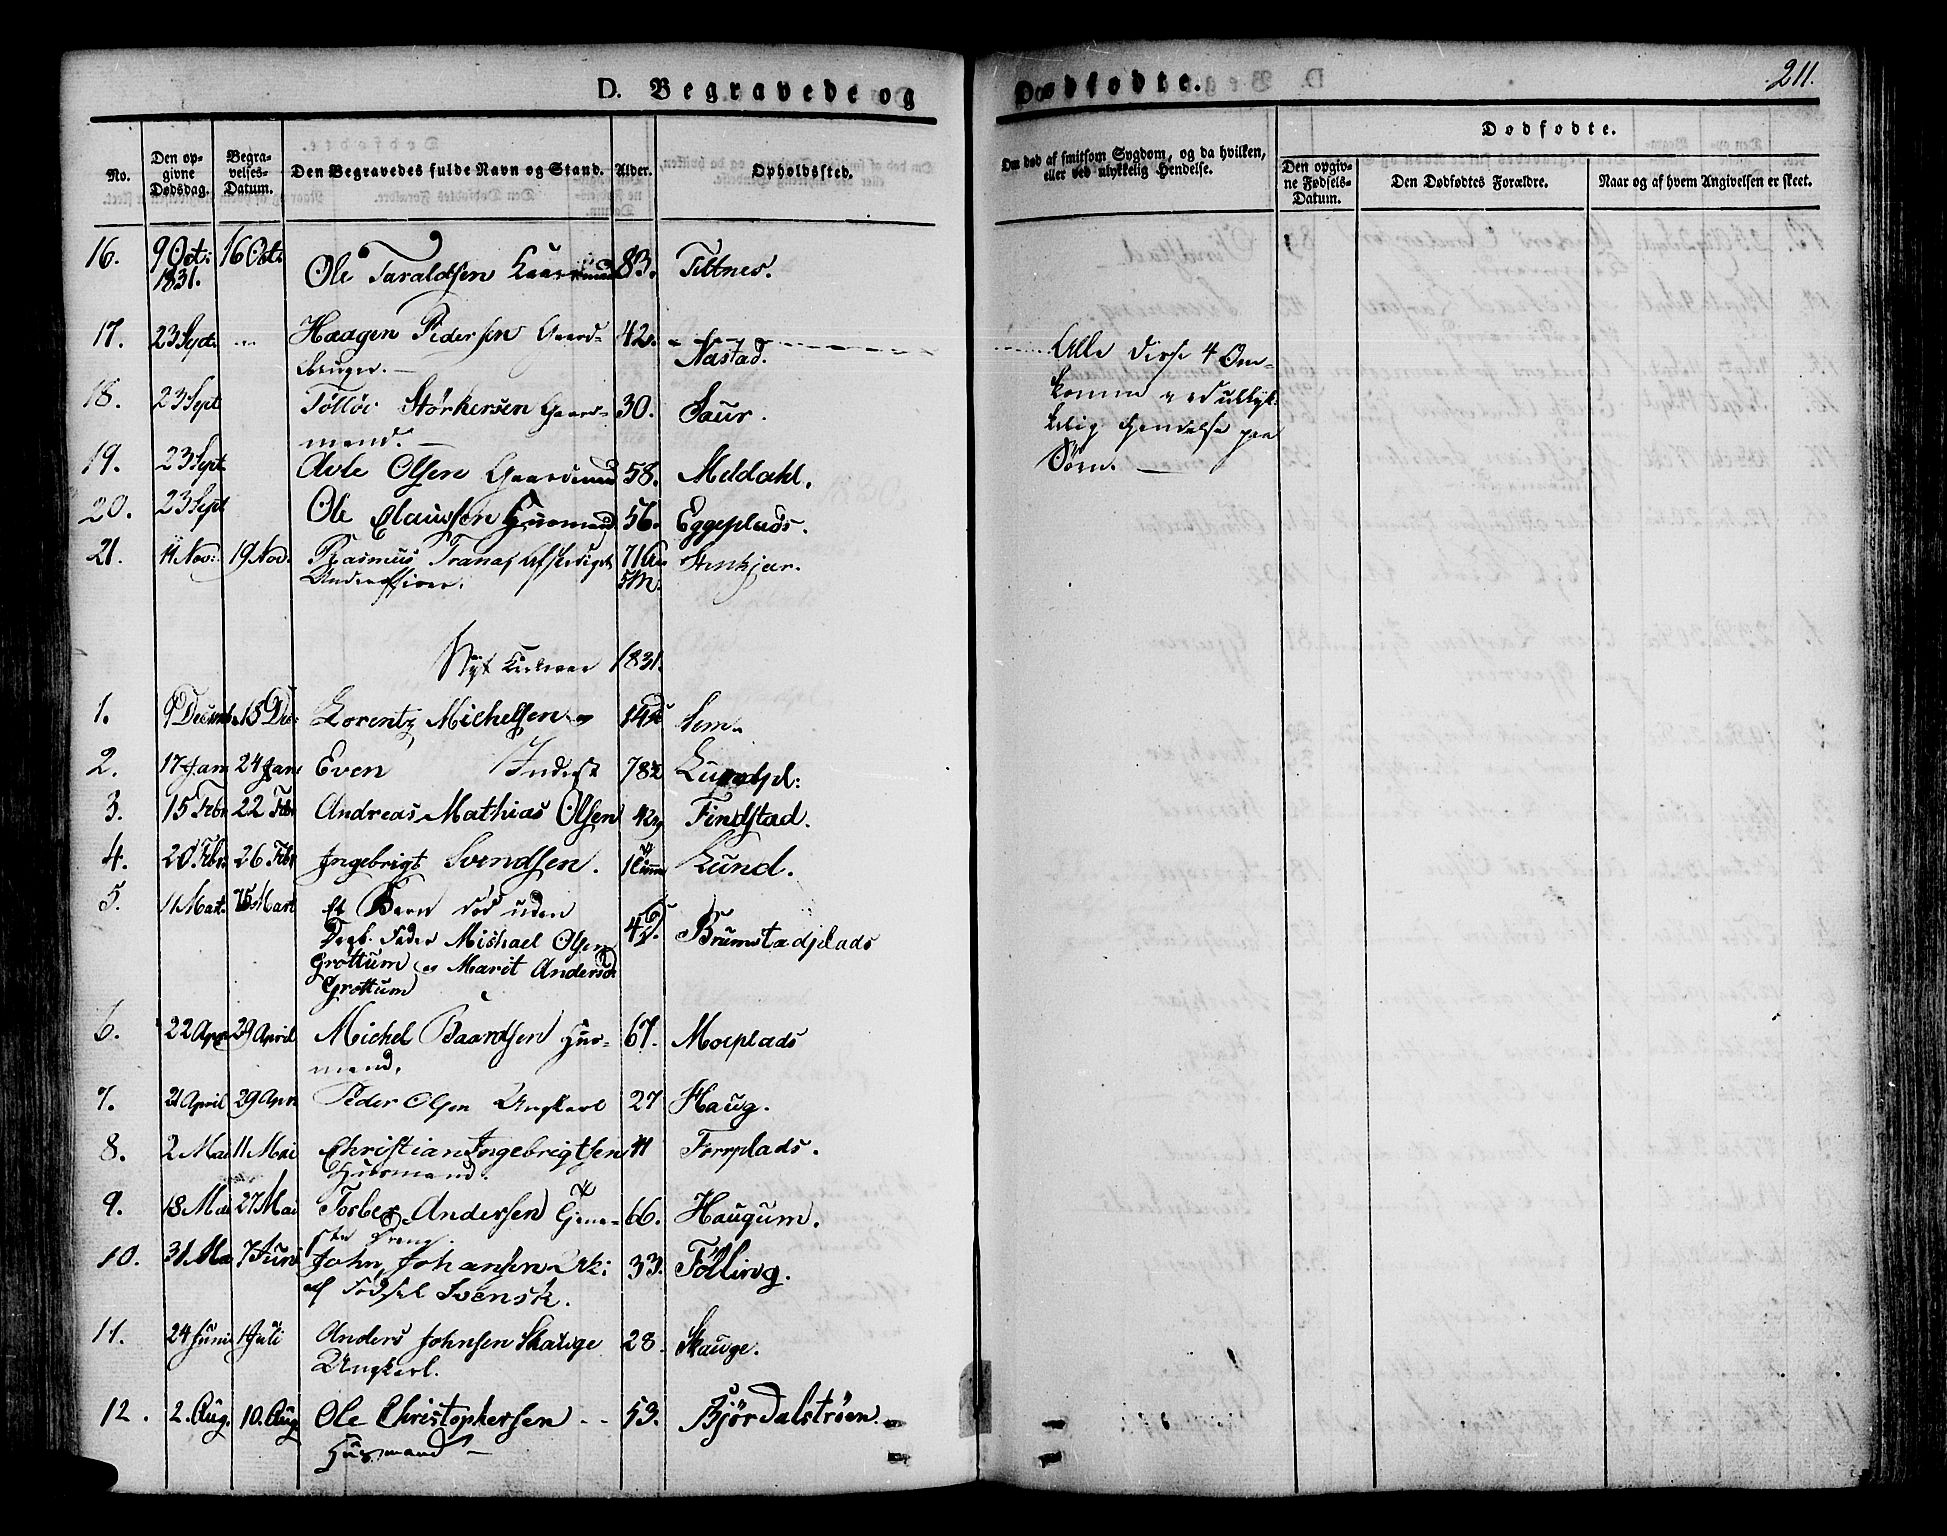 D. Begravede og
Dødfødte.
211.
No.
Den opgivne Dødsdag.
Begravelses-Datum.
Den Begravedes fulde Navn og Stand.
Alder.
Opholdssted.
Om død af smitsom Sygdom, og da hvilken, eller ved ulykkelig Hendelse.
Dødfødte.
Den opgivne Fødsels-Datum.
Den Dødfødtes Forældre.
Naar og af hvem Angivelsen er skeet.
16. 9 Oct: 1831. 16 Oct: Ole Taraldsen Gaardmand 83. Tiltnes.
17. 23 Sept. Haagen Pedersen Gaard-
bruger. 42. Nastad.
18. 23 Sept Tølløv Størkersen Gaard-
mand. 30. Saur.
19. 23 Sept. Avle Olsen Gaardmand 58. Meldahl.
20. 23 Sept Ole Clausen Huusmand 56. Eggeplads.
Alle disse 4 Om-
komne ved ulyk-
kelig Hendelse paa
Søen.
21. 11 Nov: 19 Nov. Rasmus Tranas Afskediget
Underofficer. 71 Aar 5 M. Stenkjær.
Nyt Kirkeaar 1831.
1. 9 Decemb. 15 Dec: Lorentz Michelsen 14 D Sem
2. 17 Jan 24 Jan Even Inderst 78 Lundpl:
3. 15 Febr 22 Febr Andreas Mathias Olsen Findstad.
4. 20 Febr 26 Febr Ingebrigt Svendsen. Lund.
5. 11 Mart. 15 Mart Et Barn død uden
Daab. Fader Michael Olsen
Grøttum og Marit Andersd
Grøttum Brumstadplads
6. 22 Apr 29 April Michel Baardsen Huus-
mand. 67. Moeplads
7. 21 April 29 Apri Peder Olsen Ungkarl 27 Haug.
8. 2 Mai 11 Mai Christian Ingebrigtsen
Huusmand. 41 Forrplads.
9. 18 Mai 27 Mai Torber Andersen Tjene-
ste Dreng. 66. Haugum.
10. 31 Ma 7 Juni John Johansen
af Fødsel Svensk. 33. Følling.
11. 24 Juni 1 Juli Anders Johnsen Skauge
Ungkarl. 28. Skauge.
12. 2. Aug. 10. Aug Ole Christophersen
Huusmand 53. Bjørdalstrøen.